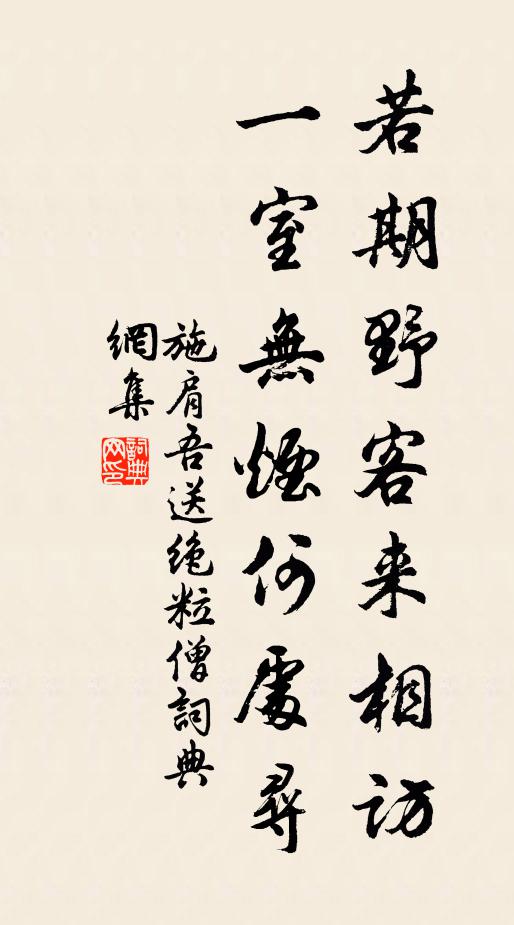 若期野客来相訪
一室無煙何處尋
施肩吾送绝粒僧詞典
網集
詞典
网印